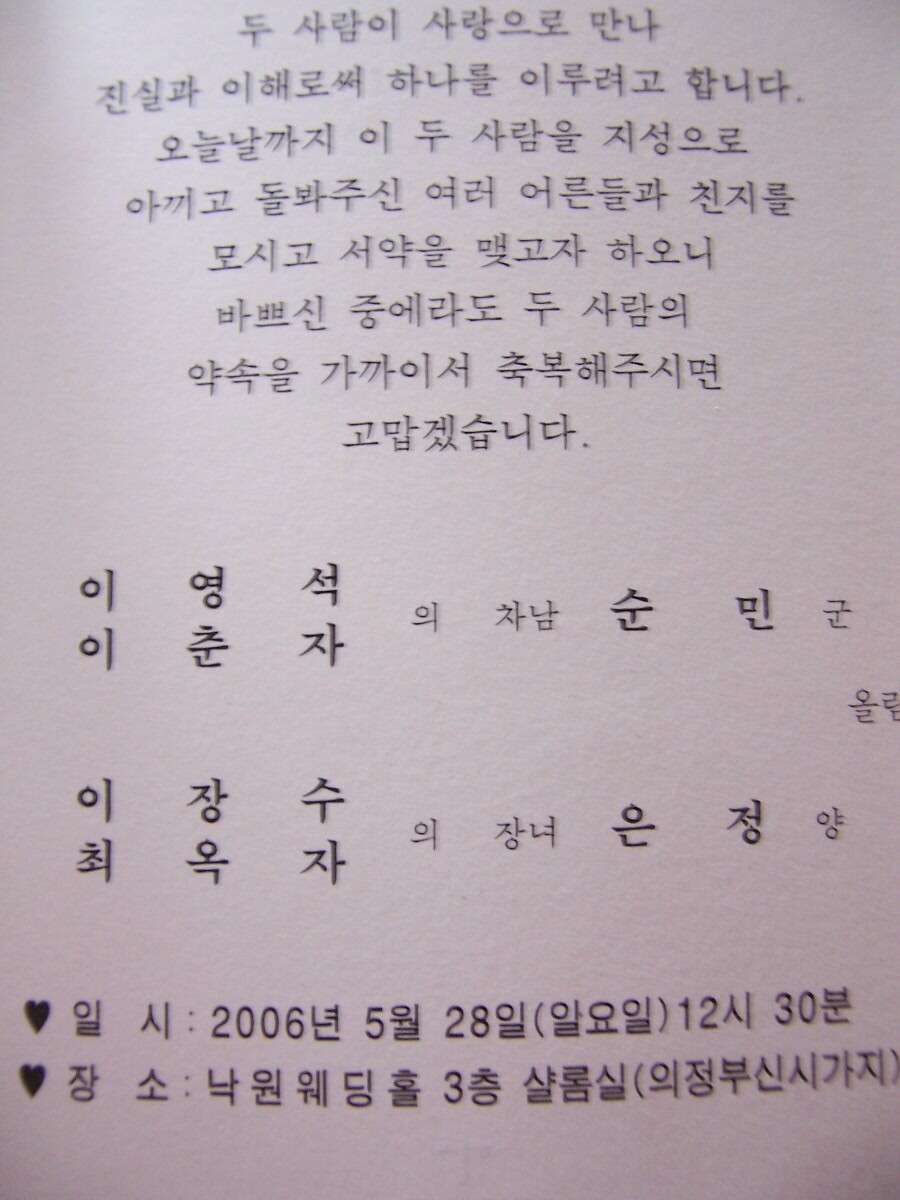 두 사람이 사랑으로 만나
진실과 이해로써 하나를 이루려고 합니다.
오늘날까지 이 두 사람을 지성으로
아끼고 돌봐주신 여러 어른들과 친지를
모시고 서약을 맺고자 하오니
바쁘신 중에라도 두 사람의
약속을 가까이서 축복해주시면
고맙겠습니다.
이영석
이춘자 의 차남 순민 군
올림
이장수
최옥자 의 장녀 은정 양
♥ 일 시 : 2006년 5월 28일(일요일)12시 30분
♥ 장 소 : 낙원웨딩홀 3층 샬롬실(의정부신시가지)